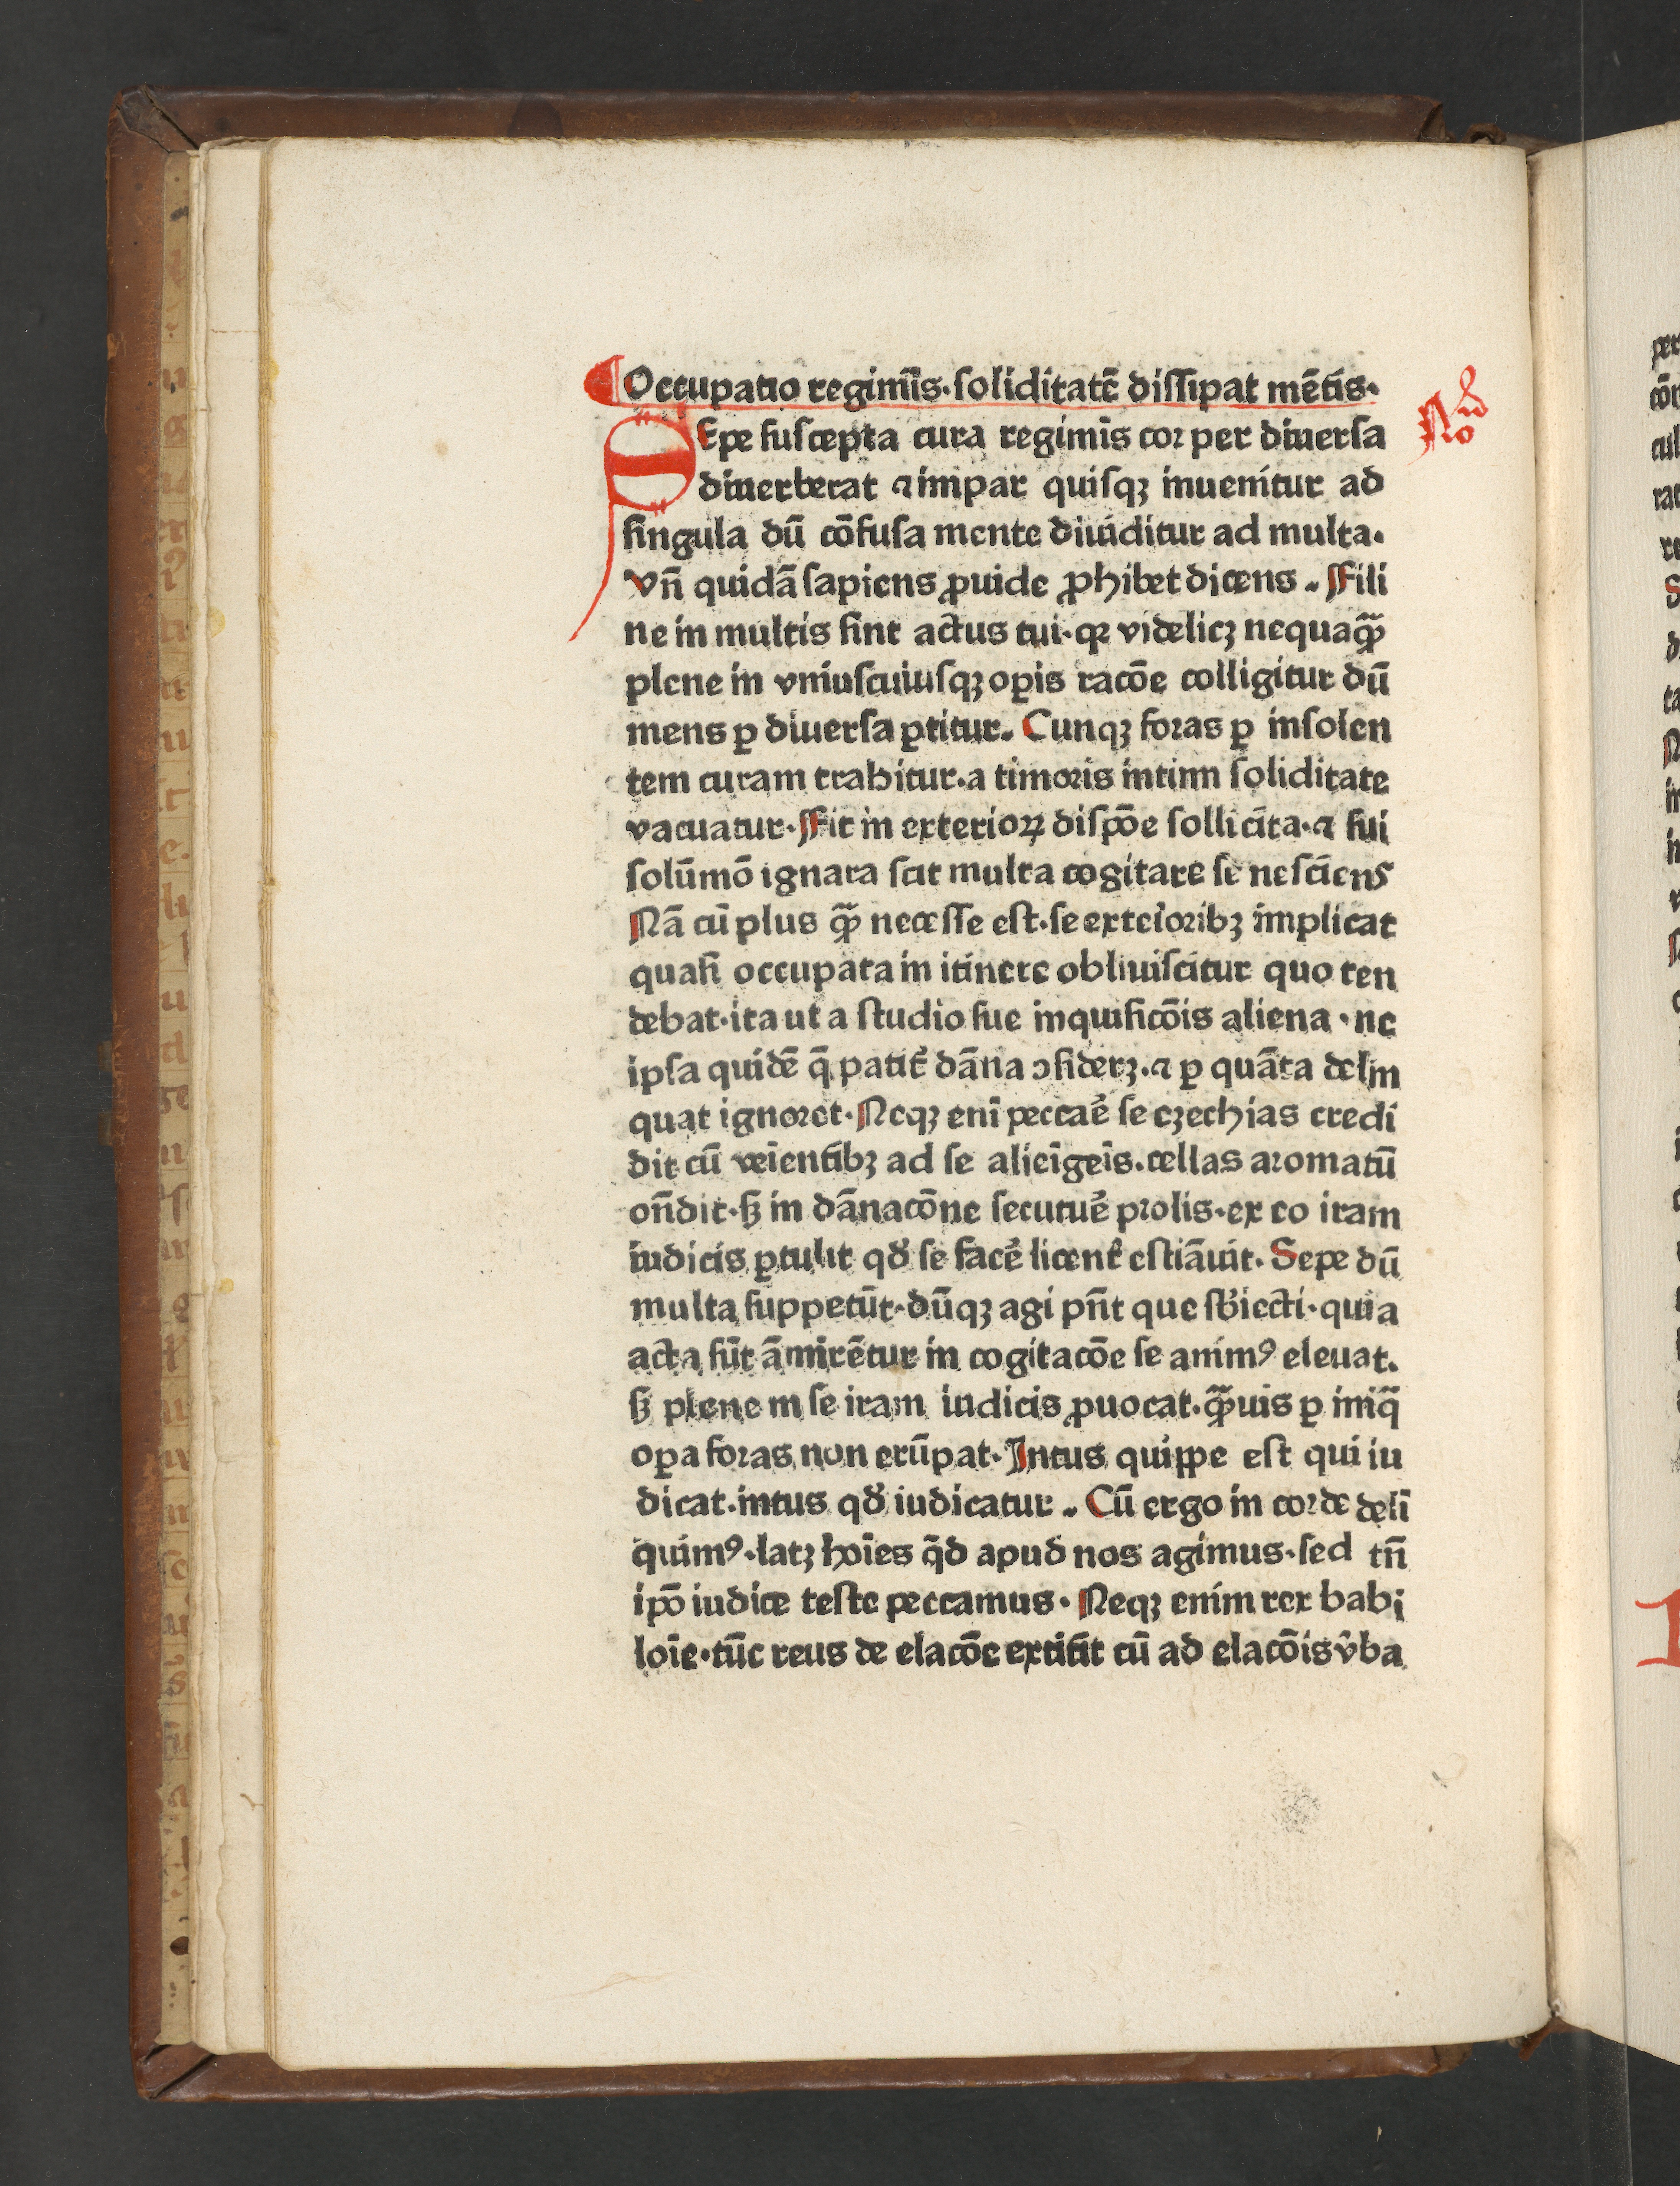 Occupatio regimīs·soliditatē dissipat mētis·
SEpe suscepta cura regimis cor per diuersa
No
diuerberat ⁊ impar quisqꝫ inuenitur ad
singula dū cōfusa mente diuiditur ad multa·
vn̄ quidā sapiens ꝓuide ꝓhibet dicens . Ffili
ne in multis sint actus tui·qꝛ videlicꝫ nequaqꝫ̄
plene in vniuscuiusqꝫ oꝑis racōe colligitur dū
mens ꝑ diuersa ꝑtitur. Cunqꝫ foras ꝑ insolen
tem curam trahitur·a timoris intimi soliditate
vacuatur·Ffit in exterioꝝ dispōe sollicita·⁊ sui
solūmō ignara scit multa cogitare se nesciens
Nā cū plus qꝫ̄ necesse est·se exterioribꝫ implicat
quasi occupata in itinere obliuiscitur quo ten
debat·ita ut a studio sue inquisicōis aliena·ne
ipsa quidē q̄ patit᷑ dāna ↄsiderꝫ·⁊ ꝑ quāta delin
quat ignoret·Neqꝫ enī peccaē se ezechias credi
dit cū veīentibꝫ ad se alieīgeīs·cellas aromatū
on̄dit·sꝫ in dānacōne secutuē prolis·ex eo iram
iudicis ꝑtulit qđ se facē licent᷑ estiāuit· Sepe dū
multa suppetūt·dūqꝫ agi pn̄t que sb̄iecti·quia
acta sūt āmirētur in cogitacōe se animꝰ eleuat.
sꝫ plene in se iram iudicis ꝓuocat·qꝫ̄uis ꝑ iniq̄
oꝑa foras non erūpat·Intus quippe est qui iu
dicat·intus qđ iudicatur . Cū ergo in corde deli
quimꝰ·latꝫ hoīes q̄d apud nos agimus·sed tn̄
ip̄o iudice teste peccamus· Neqꝫ enim rex babi
loīe·tūc reus de elacōe extitit cū ad elacōis v̂ba